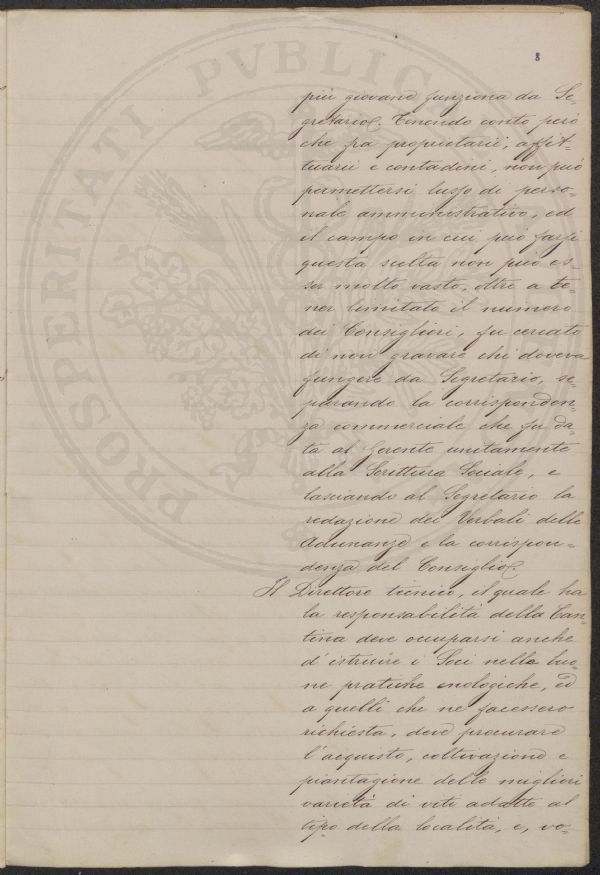 PROSPERITATI PVBLIC
8
più giovane funziona da Se-
gretario. Tenendo conto però
che fra proprietarii, affit-
tuarii e contadini, non può
permettersi lusso di perso-
nale amministrativo, ed
il campo in cui può farsi
questa scelta non può es-
ser molto vasto, oltre a te-
ner limitato il numero
dei Consiglieri, fu cercato
di non gravare chi doveva
fungere da Segretario, se-
parando la corrisponden-
za commerciale che fu da-
ta al Gerente unitamente
alla Scrittura Sociale, e
lasciando al Segretario la
redazione dei Verbali delle
Adunanze e la corrispon-
denza del Consiglio.
Il Direttore tecnico, il quale ha
la responsabilità della Can-
tina deve occuparsi anche
d'istruire i Soci nelle buo-
ne pratiche enologiche, ed
a quelli che ne facessero
richiesta, deve procurare
l'acquisto, coltivazione e
piantagione delle migliori
varietà di viti adatte al
tipo della località, e, vo-